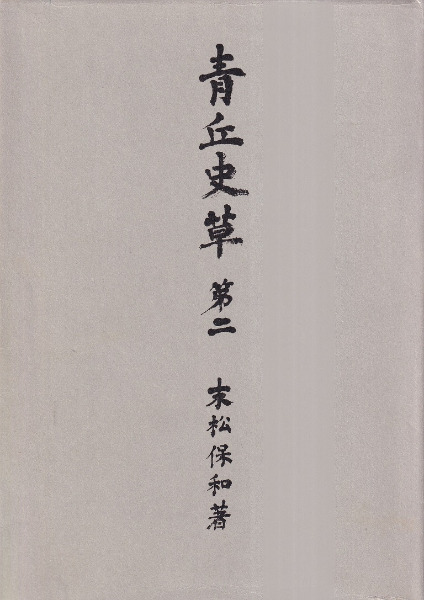 青丘史草 第二 末松保和著